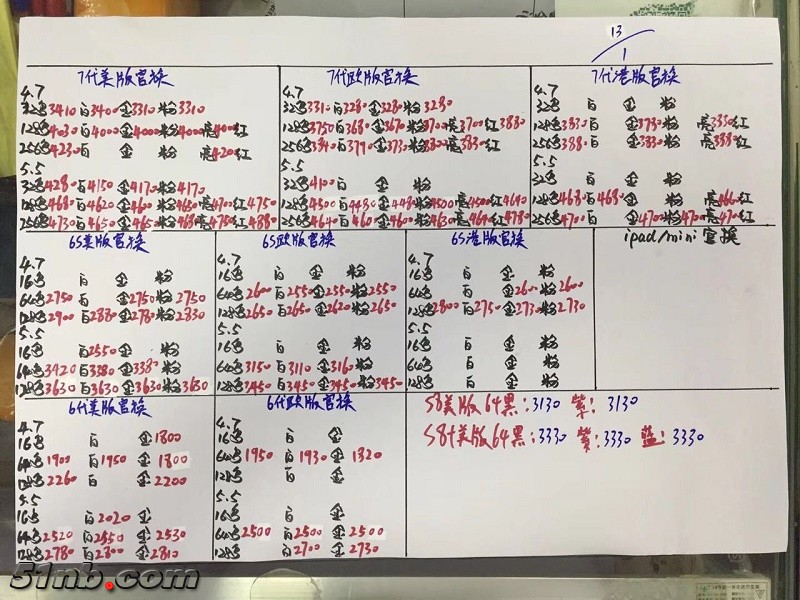 13
1
7代美版官换
4.7
32黑3410 白3400 金3310 粉3310
128黑4030 白4000 金4000 粉4000 亮4000 红
256黑4230 白 金 粉 亮4200 红
5.5
32黑4280 白4150 金4170 粉4170
128黑4680 白4620 金4600 粉4650 亮4700 红4750
256黑4730 白4650 金4650 粉4680 亮4750 红4880
7代欧版官换
4.7
32黑3310 白3280 金3280 粉3280
128黑3750 白3680 金3670 粉3700 亮3700 红3880
256黑3840 白3790 金3730 粉3800 亮3830 红
5.5
32黑4100 白 金 粉
128黑4500 白4430 金4480 粉4500 亮4500 红4640
256黑4640 白4600 金4600 粉4630 亮4640 红4780
7代港版官换
4.7
32黑 白 金 粉
128黑3830 白 金3730 粉 亮3830 红
256黑3880 白 金3830 粉 亮3880 红
5.5
32黑 白 金 粉
128黑4680 白4680 金 粉 亮4660 红
256黑4700 白 金4700 粉4700 亮4700 红
6S美版官换
4.7
16黑 白 金 粉
64黑2750 白 金2750 粉2750
128黑2900 白2880 金2780 粉2830
5.5
16黑 白2550 金 粉
64黑3420 白3380 金3380 粉
128黑3630 白3630 金3630 粉3630
6S欧版官换
4.7
16黑 白 金 粉
64黑2600 白2550 金2550 粉2550
128黑2650 白2650 金2620 粉2650
5.5
16黑 白 金 粉
64黑3150 白3110 金3160 粉
128黑3450 白3450 金3450 粉3450
6S港版官换
4.7
16黑 白 金 粉
64黑 白 金2600 粉2600
128黑2800 白2750 金2730 粉2730
5.5
16黑 白 金 粉
64黑 白 金 粉
128黑 白 金 粉
ipad/mini 官换
6代美版官换
4.7
16黑 白 金1800
64黑1900 白1950 金1800
128黑2260 白 金2200
5.5
16黑 白2020 金
64黑2520 白2550 金2530
128黑2780 白2800 金2810
6代欧版官换
4.7
16黑 白 金
64黑1950 白1930 金1920
128黑 白 金
5.5
16黑 白 金
64黑2500 白2500 金2500
128黑 白2700 金2730
S8美版64黑:3130 紫:3130
S8+美版64黑:3330 紫:3330 蓝:3330
51nb.com